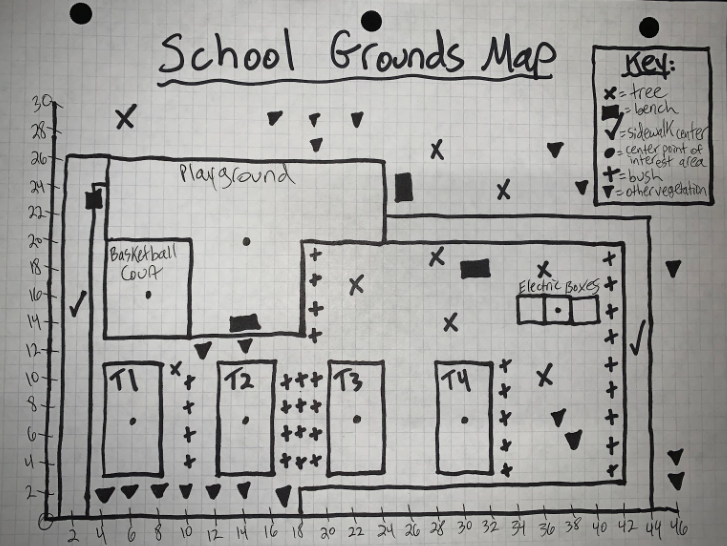 School Grounds Map
Key:
x = tree
■ = bench
✓ = sidewalk center
• = center point of
interest area
+ = bush
▼ = other vegetation
30
28
26
24
22
20
18
16
14
12
10
8
6
4
2
0
Playground
Basketball
Court
Electric Boxes
T1
T2
T3
T4
2 4 6 8 10 12 14 16 18 20 22 24 26 28 30 32 34 36 38 40 42 44 46